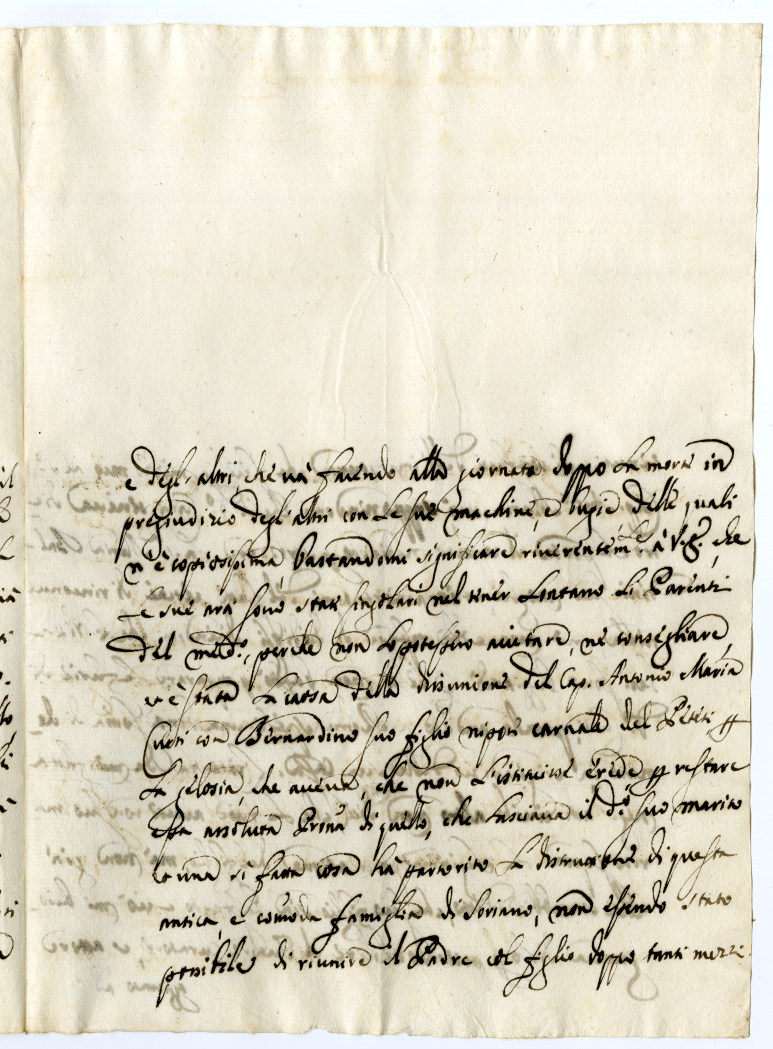 e degl'altri che và facendo alla giornata doppo la morte in
pregiudizio degl'altri con le sue machine, e bugie delle quali
n'è copiosissima, bastandomi significare riverentem.te à V.S. che
le sue arti sono state singolari nel tener lontano li Parenti
del med.o, perche non lo potessero aiutare, ne consegliare,
et è stata la causa della disunione del Cap. Antonio Maria
con Bernardino suo figlio nipote carnale del Peteti p
la gelosia, che aveva, che non l'istituisse erede p restare
essa assoluta Prona di quello, che lasciava il d.o suo marito
una si fatta cosa hà partorito la distruzione di questa
antica, e comoda famiglia di Soriano, non essendo stato
possibile di riunire il Padre col figlio doppo tanti mezzi